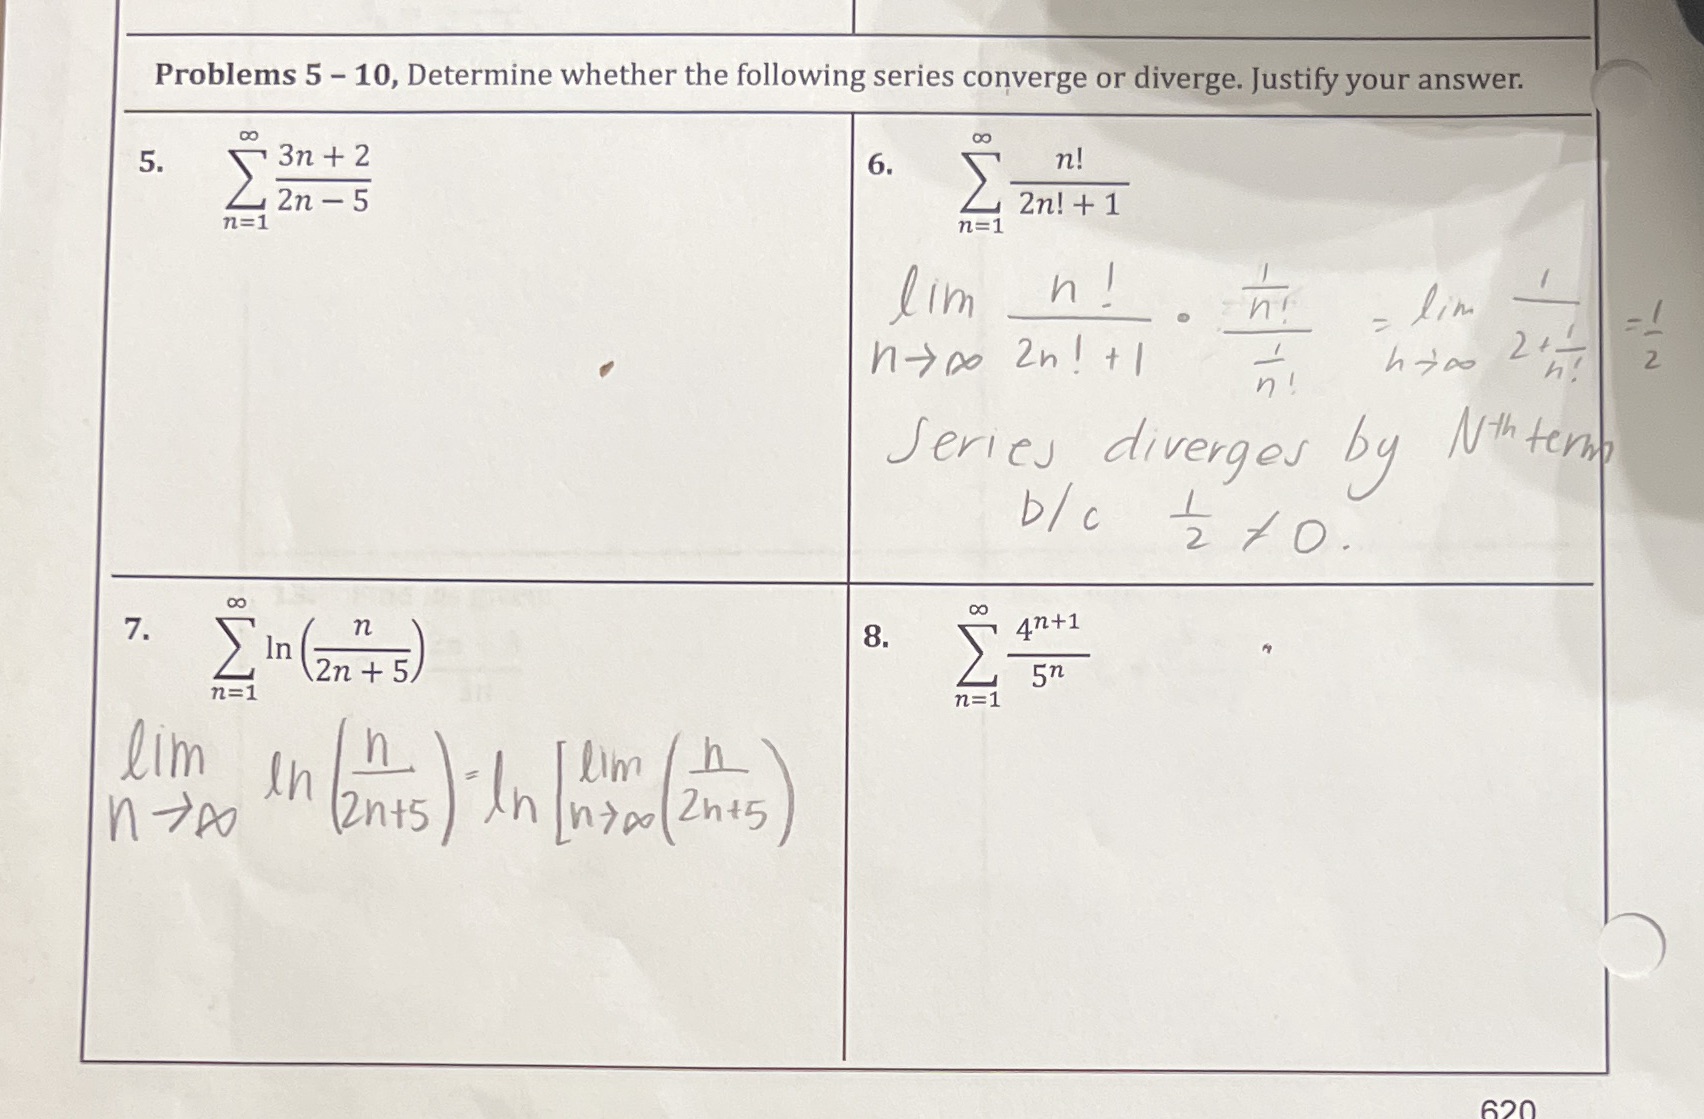 Problems 5 – 10, Determine whether the following series converge or diverge. Justify your answer.
5. ∑_{n=1}^{∞} (3n + 2)/(2n − 5)
6. ∑_{n=1}^{∞} n!/(2n! + 1)
lim_{n→∞} n!/(2n! + 1) • (1/n!)/(1/n!) = lim_{n→∞} 1/(2 + 1/n!) = 1/2
Series diverges by Nth term
b/c 1/2 ≠ 0.
7. ∑_{n=1}^{∞} ln(n/(2n + 5))
lim_{n→∞} ln(n/(2n+5)) = ln[lim_{n→∞} (n/(2n+5))
8. ∑_{n=1}^{∞} 4^{n+1}/5^n
620